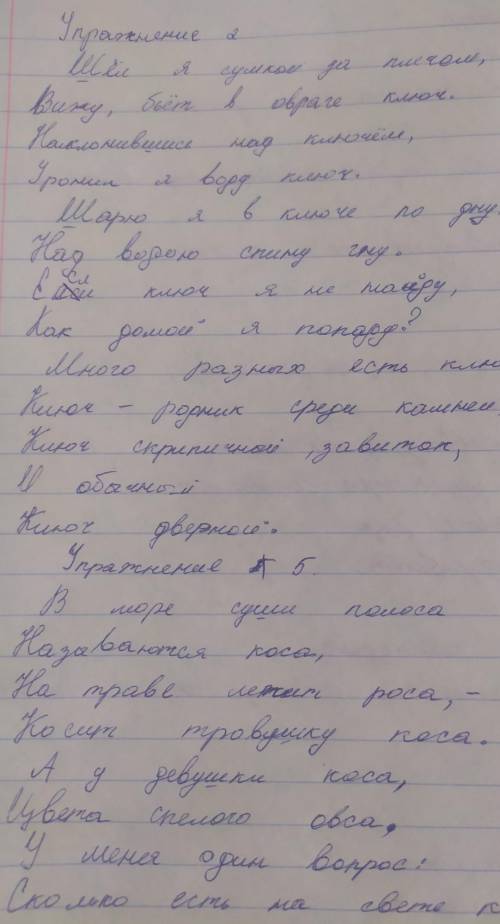 Упражнение 2
Шёл я сумкой за плечом,
Вижу, бьёт в овраге ключ.
Наклонившись над ключём,
Уронил я ворд ключ.
Шарю я в ключе по дну,
Над водою спину гну.
Если ключ я не найду,
Как домой я попаду?
Много разных есть клю
Ключ - родник среди камней,
Ключ скрипичной, завиток,
И обачный
Ключ дверной.
Упражнение 5.
В море суши полоса
Называются коса,
На траве лежит роса, -
Косит травушку коса.
А у девушки коса,
Цвета спелого овса.
У меня один вопрос:
Сколько есть на свете к